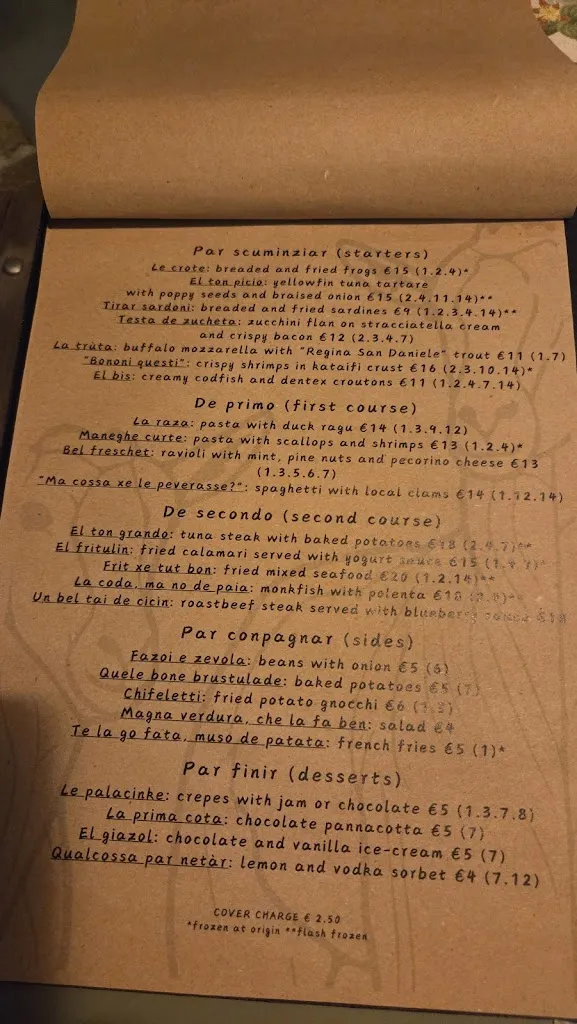 Par scuminziar (starters)
Le crote: breaded and fried frogs €15 (1.2.4)*
El ton picio: yellowfin tuna tartare
with poppy seeds and braised onion €15 (2.4.11.14)**
Tirar sardoni: breaded and fried sardines €9 (1.2.3.4.14)**
Testa de zucheta: zucchini flan on stracciatella cream
and crispy bacon €12 (2.3.4.7)
La trùta: buffalo mozzarella with "Regina San Daniele" trout €11 (1.7)
"Bononi questi": crispy shrimps in kataifi crust €16 (2.3.10.14)*
El bis: creamy codfish and dentex croutons €11 (1.2.4.7.14)
De primo (first course)
La raza: pasta with duck ragu €14 (1.3.9.12)
Maneghe curte: pasta with scallops and shrimps €13 (1.2.4)*
Bel freschet: ravioli with mint, pine nuts and pecorino cheese €13
(1.3.5.6.7)
"Ma cossa xe le peverasse?": spaghetti with local clams €14 (1.12.14)
De secondo (second course)
El ton grando: tuna steak with baked potatoes €18 (2.4.7)**
El fritulin: fried calamari served with yogurt sauce €15
Frit xe tut bon: fried mixed seafood €20 (1.2.14)**
La coda, ma no de paia: monkfish with polenta €18
Un bel tai de cicin: roastbeef steak served with blueberry
Par conpagnar (sides)
Fazoi e zevola: beans with onion €5 (6)
Quele bone brustulade: baked potatoes €5 (7)
Chifeletti: fried potato gnocchi €6 (1.3)
Magna verdura, che la fa ben: salad €4
Te la go fata, muso de patata: french fries €5 (1)*
Par finir (desserts)
Le palacinke: crepes with jam or chocolate €5 (1.3.7.8)
La prima cota: chocolate pannacotta €5 (7)
El giazol: chocolate and vanilla ice-cream €5 (7)
Qualcossa par netàr: lemon and vodka sorbet €4 (7.12)
COVER CHARGE € 2.50
*frozen at origin **flash frozen